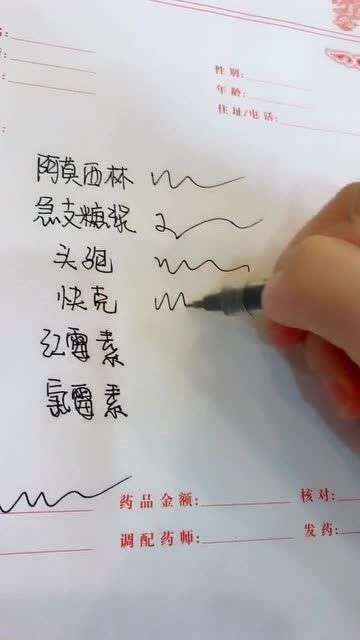 性别:
年龄:
住址/电话:
阿莫西林
急支糖浆
头孢
快克
红霉素
氯霉素
药品金额: 核对:
调配药师: 发药: